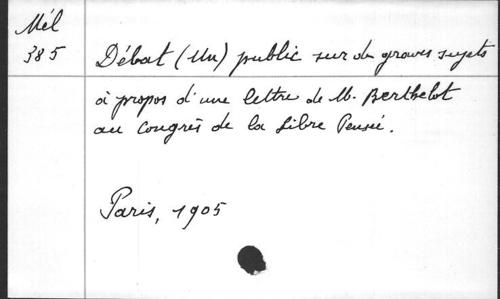 Mél
385
Débat (Un) public sur de graves sujets
à propos d'une lettre de M. Berthelot
au Congrès de la Libre Pensée.
Paris, 1905